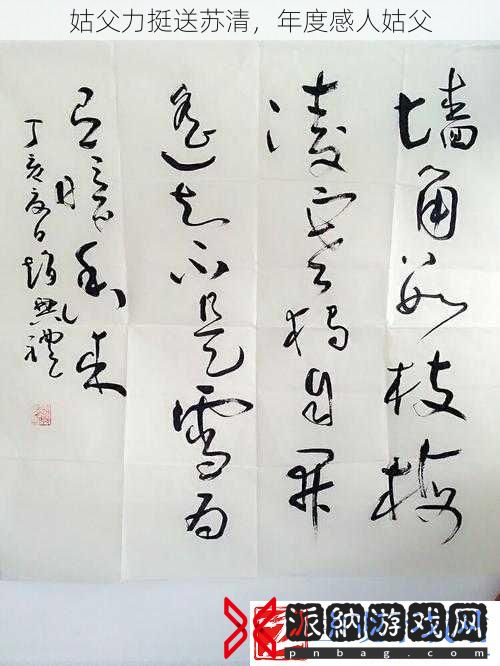 姑父力挺送苏清，年度感人姑父
墙角数枝梅
凌寒独自开
遥知不是雪为
有暗香来
丁亥夏日赵兴礼
派納游戏网
pnbag.com